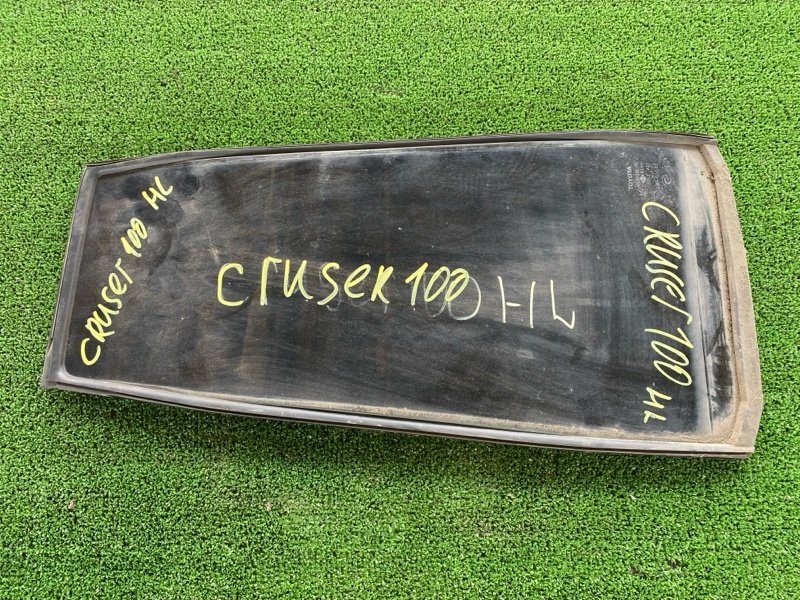 CRUSER 100 HL
CRUSER 100 HL
TOYOTA
CRUSER 100 HL